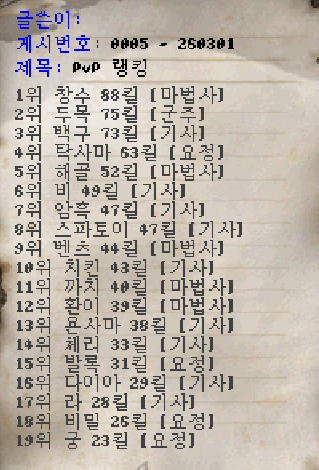 글쓴이:
게시번호: 0005 - 260301
제목: pvp 랭킹
1위 창수 88킬 [마법사]
2위 두목 75킬 [군주]
3위 백구 73킬 [기사]
4위 탁사마 63킬 [요정]
5위 해골 52킬 [마법사]
6위 비 49킬 [기사]
7위 암흑 47킬 [기사]
8위 스파토이 47킬 [기사]
9위 벤츠 44킬 [마법사]
10위 치킨 43킬 [기사]
11위 까치 40킬 [마법사]
12위 환이 39킬 [마법사]
13위 욘사마 38킬 [기사]
14위 체리 33킬 [기사]
15위 발록 31킬 [요정]
16위 다이아 29킬 [기사]
17위 라 28킬 [기사]
18위 비밀 26킬 [기사]
19위 궁 23킬 [요정]